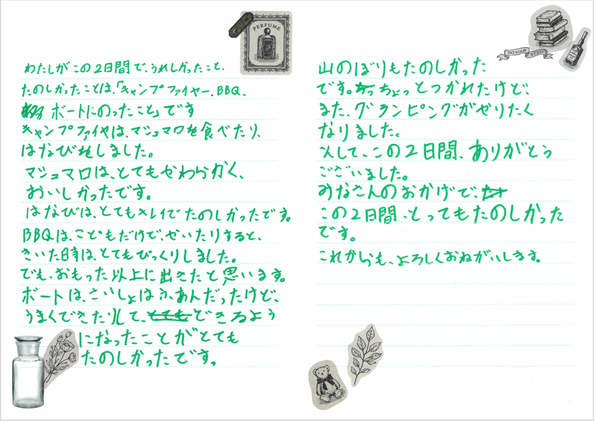 わたしがこの2日間で、うれしかったこと、
たのしかったことは、「キャンプファイヤー、BBQ、
ボートにのったこと」です
キャンプファイヤは、マシュマロを食べたり、
はなびをしました。
マシュマロは、とてもやわらかく、
おいしかったです。
はなびは、とてもキレイでたのしかったです。
BBQは、こどもだけで、やいたりすると、
きいた時は、とてもびっくりしました。
でも、おもった以上に出きたと思います。
ボートは、さいしょはふあんだったけど、
うまくできたりして、できるよう
になったことがとても
たのしかったです。
山のぼりもたのしかった
です。ちょっとつかれたけど、
また、グランピングがやりたく
なりました。
そして、この2日間、ありがとう
ございました。
みなさんのおかげで、
この2日間、とってもたのしかった
です。
これからも、よろしくおねがいします。
PERFUME